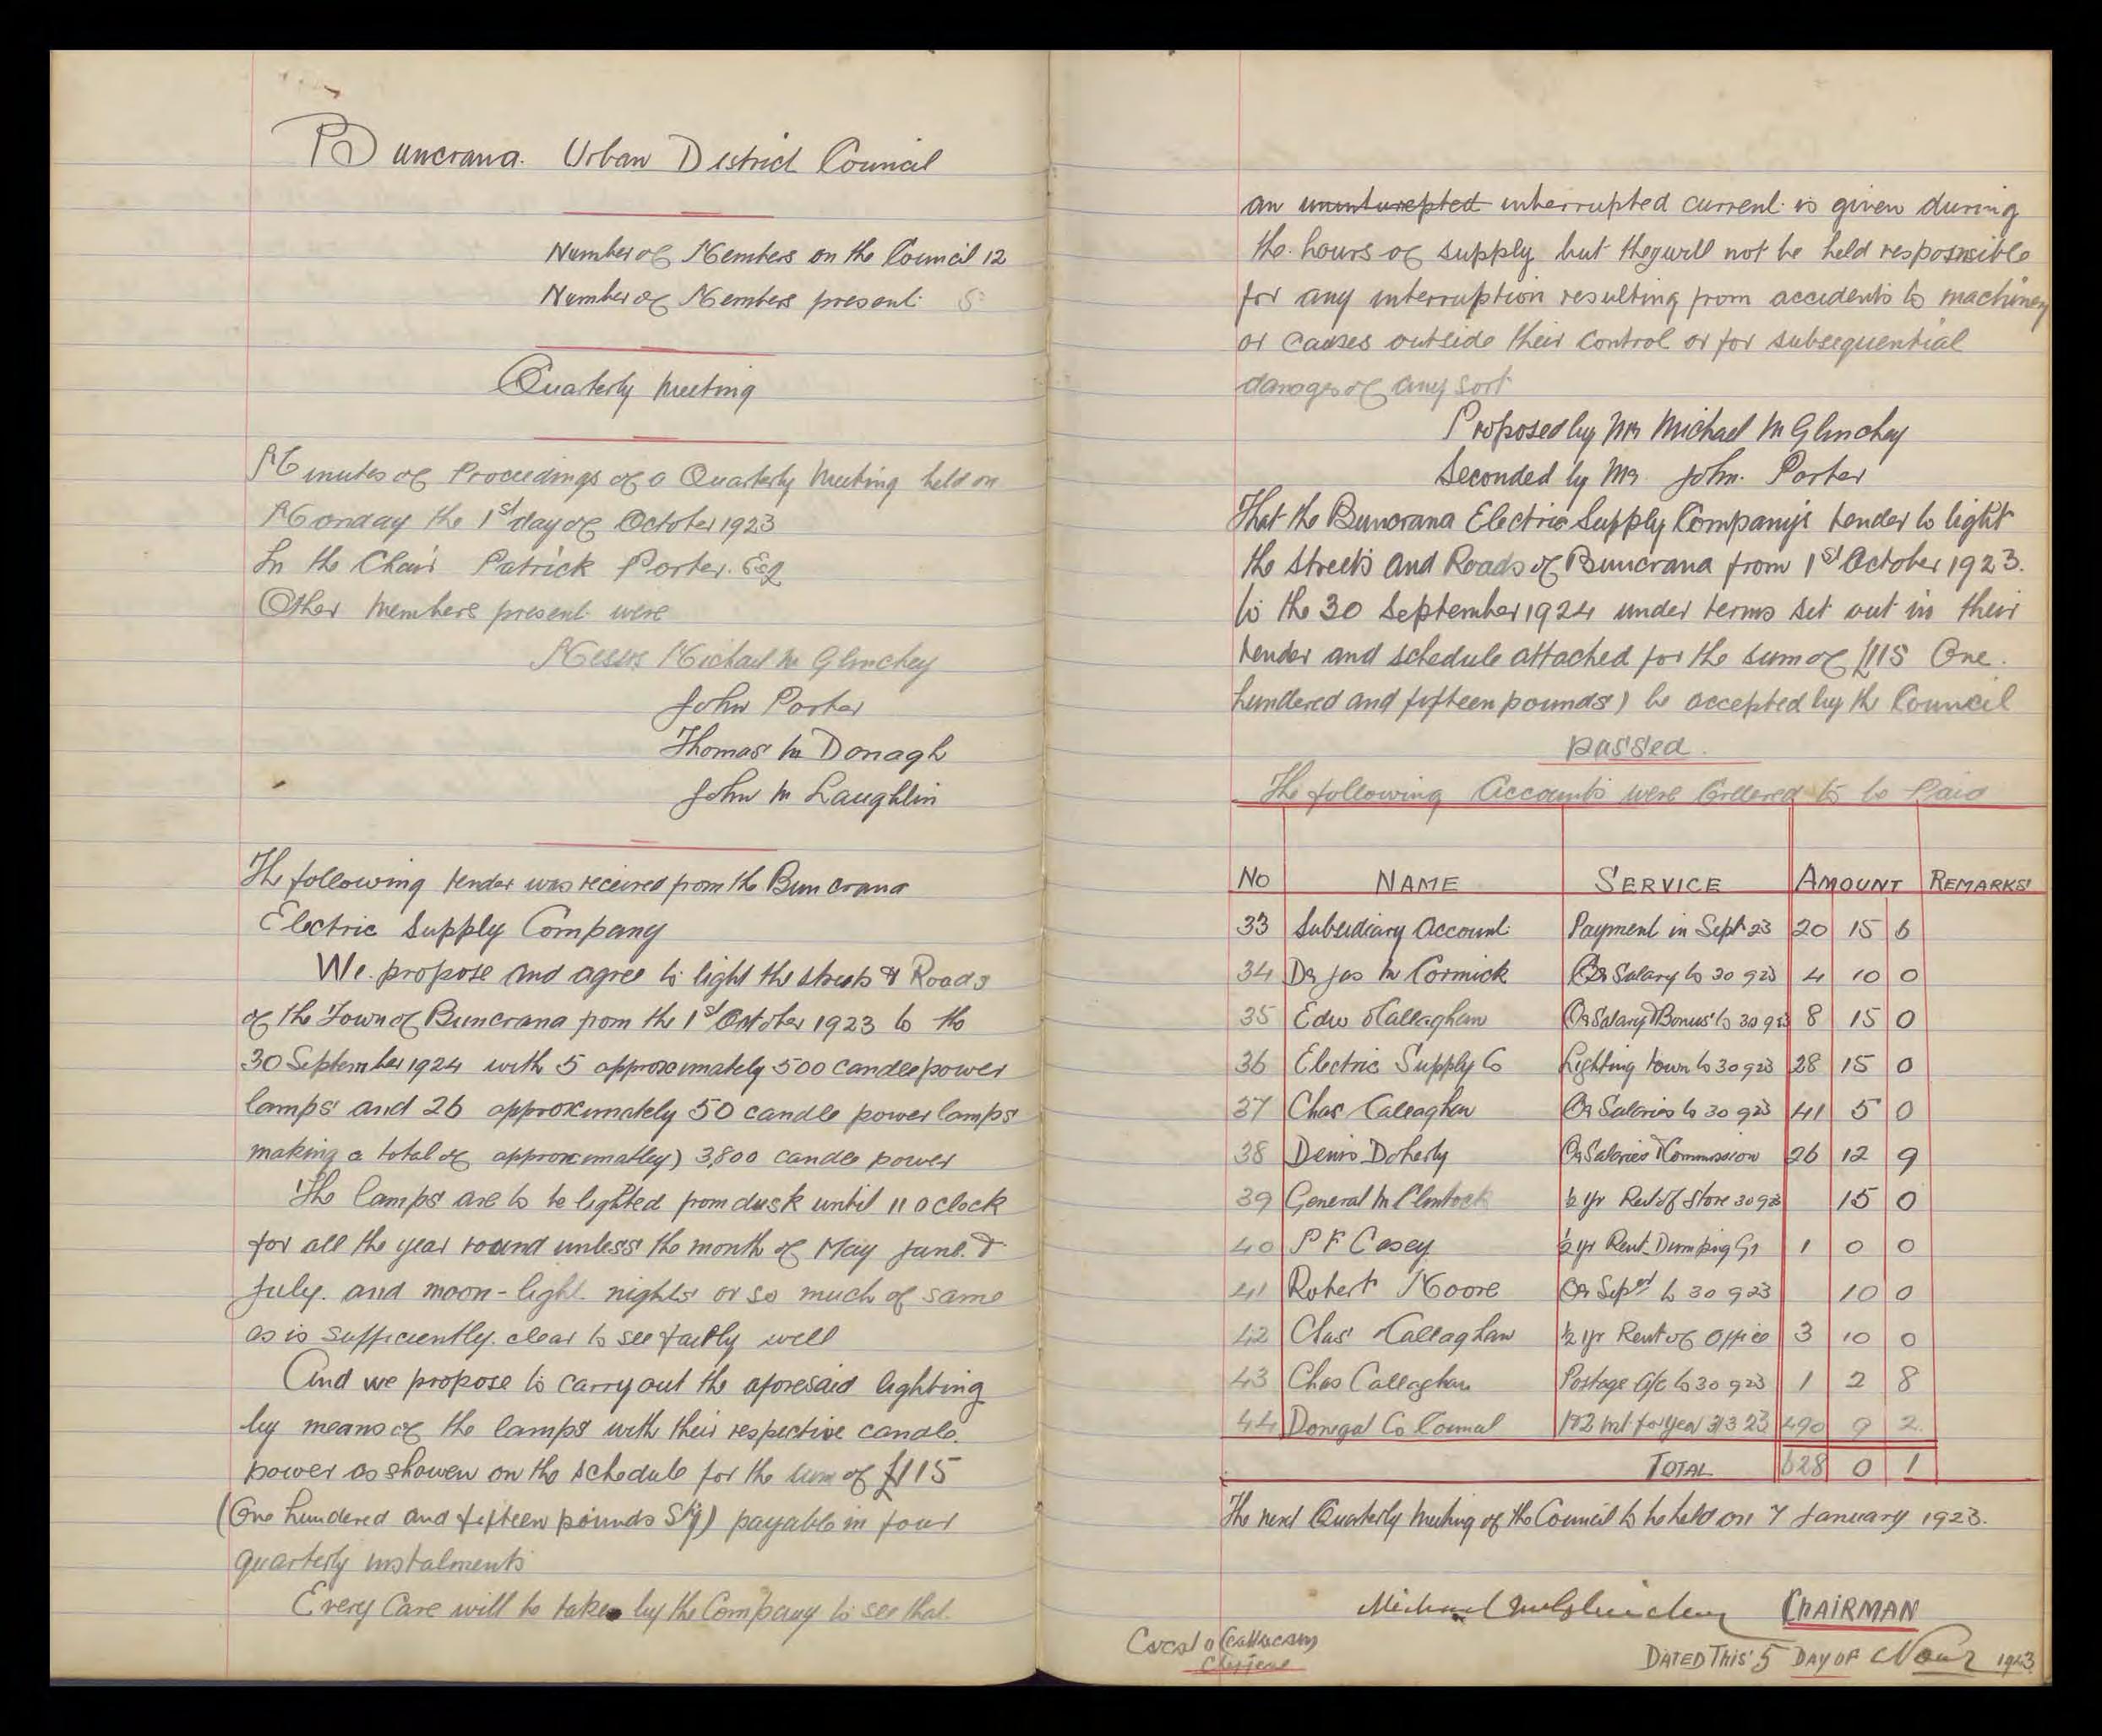 Buncrana Urban District Council
Number of Members on the Council 12
Number of Members present 5
Quarterly Meeting
Minutes of Proceedings of a Quarterly Meeting held on
Monday the 1st day of October 1923
In the Chair Patrick Porter Esq
Other members present were
Messrs Michael Mc Glinchey
John Porter
Thomas Mc Donagh
John Mc Laughlin
The following tender was received from the Buncrana
Electric Supply Company
We propose and agree to light the streets & Roads
of the Town of Buncrana from the 1st October 1923 to the
30 September 1924 with 5 approximately 500 candle power
lamps and 26 approximately 50 candle power lamps
making a total of approximatley) 3,800 candle power
The lamps are to be lighted from dusk until 11 o clock
for all the year round unless the month of May June &
July and moon-light nights or so much of same
as is sufficiently clear to see fairly well
And we propose to carry out the aforesaid lighting
by means of the lamps with their respective candle
power as showen on the schedule for the sum of £115
(One hundered and fifteen pounds Stg) payable in four
quarterly instalments
Every Care will be taken by the Company to see that
an uninturepted interrupted current is given during
the hours of supply but they will not be held resposnsible
for any interruption resulting from accidents to machinery
or causes outside their control or for subsequential
damages of any sort
Proposed by Mr Michael Mc Glinchey
Seconded by Mr John Porter
That the Buncrana Electric Supply Company's tender to light
the streets and Roads of Buncrana from 1st October 1923
to the 30 September 1924 under terms set out in their
tender and schedule attached for the sum of £115 One
hundered and fifteen pounds) be accepted by the Council
passed.
The following Accounts were Ordered to be Paid
No NAME SERVICE AMOUNT REMARKS
33 Subsidiary Account Payment in Sept 23 20 15 6
34 Dr Jas Mc Cormick Qr Salary to 30 9 23 4 10 0
35 Edw O'Callaghan Qr Salary & Bonus to 30 9 23 8 15 0
36 Electric Supply Co Lighting town to 30 9 23 28 15 0
37 Chas Callaghan Qr Salaries to 30 9 23 41 5 0
38 Denis Doherty Qr Salaries & Commission 26 12 9
39 General Mc Clintock ½ yr Rent of Store 30 9 23 15 0
40 P F Casey ½ yr Rent Dumping Gr 1 0 0
41 Robert Moore Qr to 30 9 23 10 0
42 Chas O'Callaghan ½ yr Rent of Office 3 10 0
43 Chas Callaghan Postage A/c to 30 9 23 1 2 8
44 Donegal Co Council for year 31 3 23 490 9 2
TOTAL 628 0 1
The next Quarterly Meeting of the Council to be held on 7 January 1923.
Michael McGlinchey CHAIRMAN
DATED THIS 5 DAY OF Novr 1923